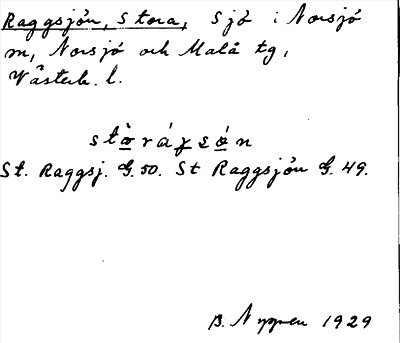 Raggsjön, Stora, Sjö i Norsjö
m, Norsjö och Malå tg,
Västerb. l.
St. Raggsj. G. 50. St Raggsjön G. 49.
B. 1929